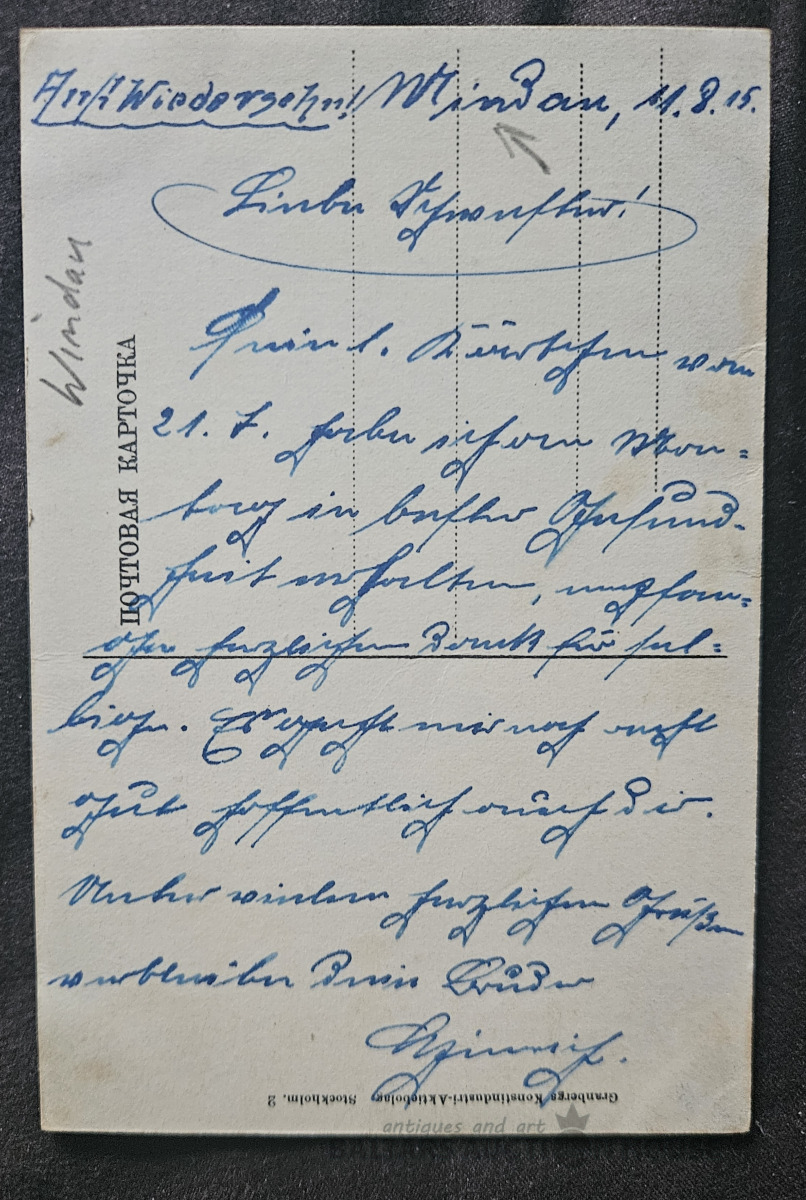 Auf Wiedersehn! Windau, 11.8.15.
Liebe Schwester!
Dein l. Kärtchen vom
21. 7. habe ich am Mon-
tag in bester Gesund-
heit erhalten, empfan-
ge herzlichen Dank für sel-
bige. Es geht mir noch recht
gut hoffentlich auch Dir.
Unter vielen herzlichen Grüßen
verbleibe Dein Bruder
Heinrich.
Windau
ПОЧТОВАЯ КАРТОЧКА
Granbergs Konstindustri-Aktiebolag Stockholm. 2
antiques and art